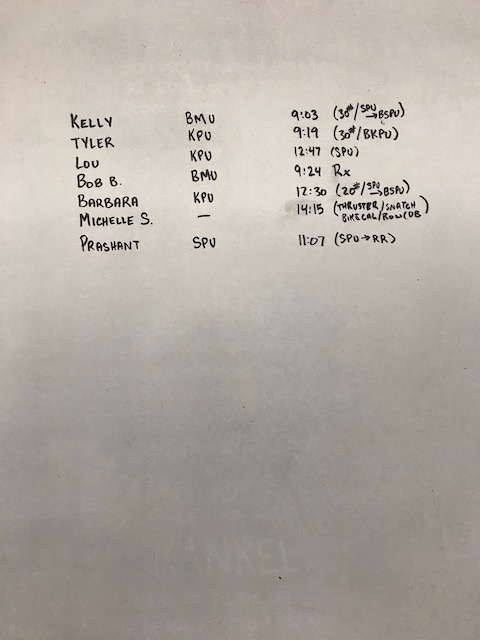 KELLY BMU 9:03 (30#/SPU→BSPU)
TYLER KPU 9:19 (30#/BKPU)
LOU KPU 12:47 (SPU)
BOB B. BMU 9:24 Rx
BARBARA KPU 12:30 (20#/SPU→BSPU)
MICHELLE S. — 14:15 (THRUSTER/SNATCH
BIKE CAL/ROW/DB)
PRASHANT SPU 11:07 (SPU→RR)
RANKEL